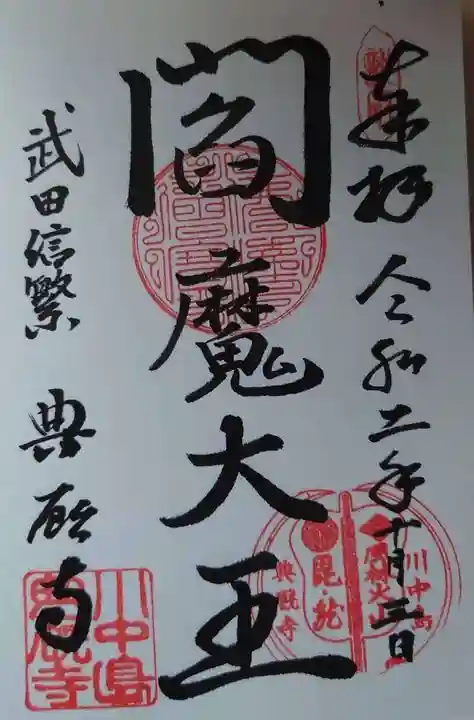 奉拝 令和二年十月三日
閻魔大王
武田信繁 典厩寺
川中島
典厩寺
川中島
風林火山
毘・龍
典厩寺